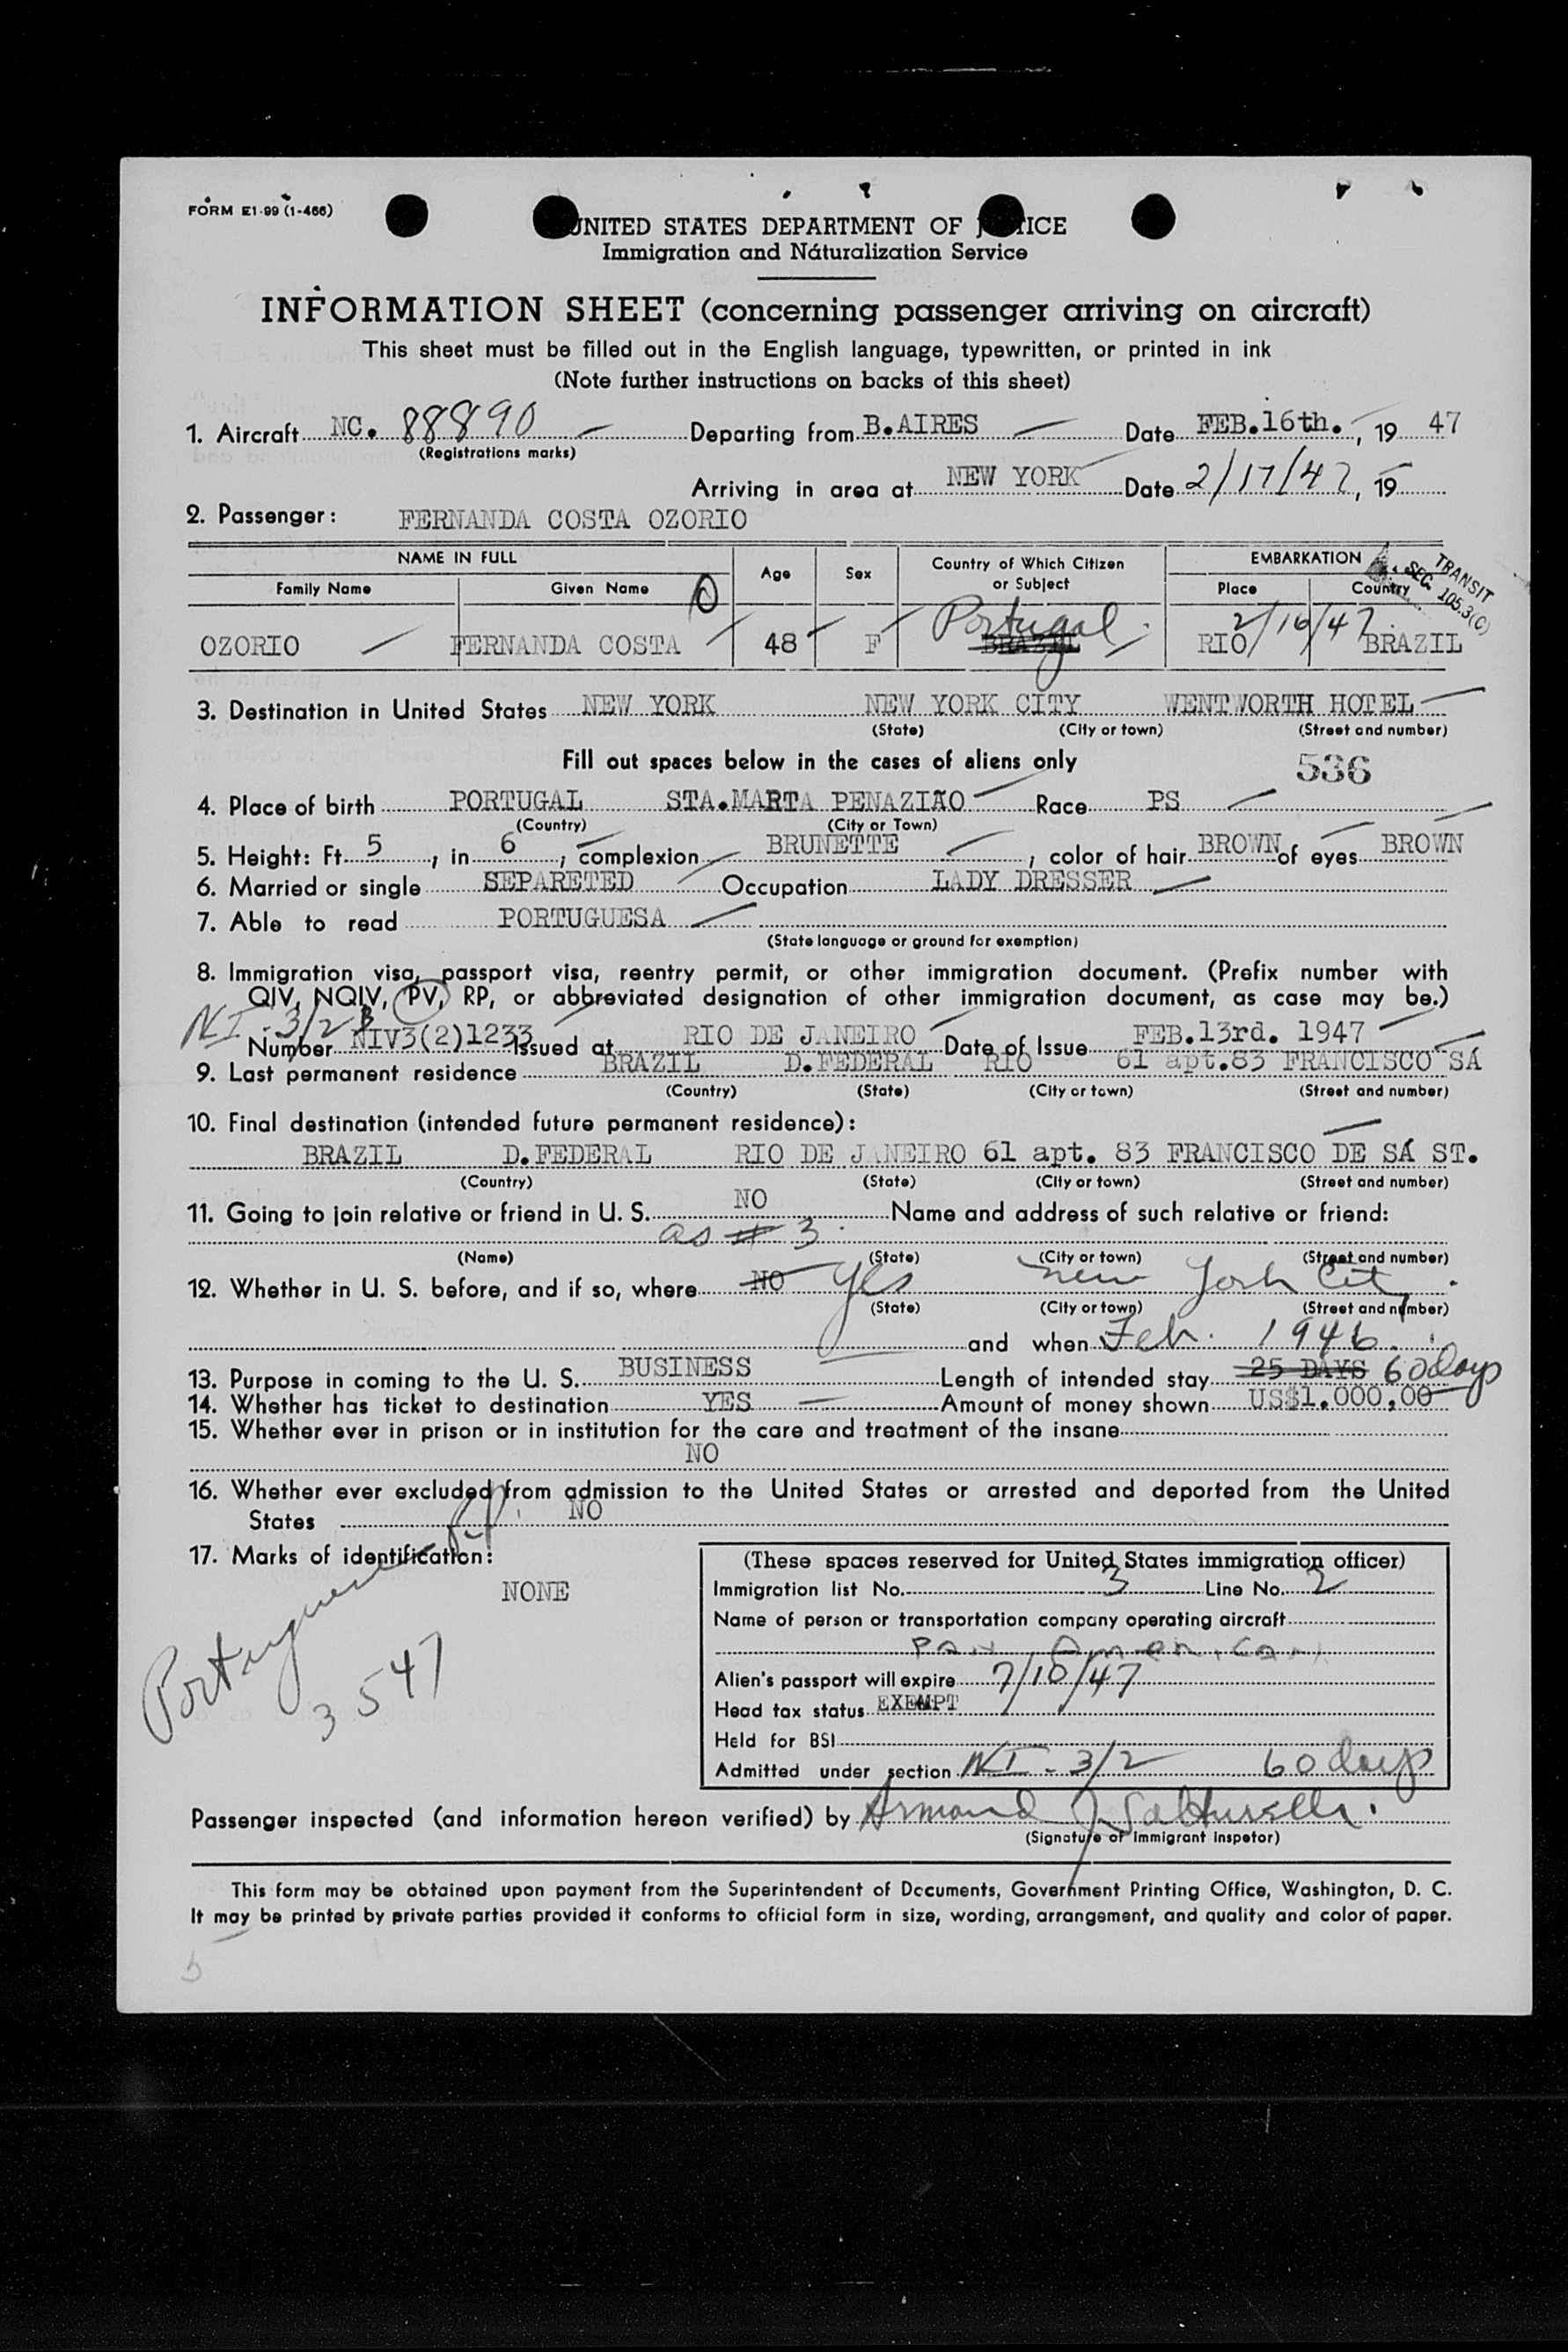 FORM E1-99 (1-466)
UNITED STATES DEPARTMENT OF J TICE
Immigration and Naturalization Service
INFORMATION SHEET (concerning passenger arriving on aircraft)
This sheet must be filled out in the English language, typewritten, or printed in ink
(Note further instructions on backs of this sheet)
1. Aircraft NC. 88890 Departing from B.AIRES Date FEB.16th., 19 47
(Registrations marks)
Arriving in area at NEW YORK Date 2/17/47, 19
2. Passenger: FERNANDA COSTA OZORIO
NAME IN FULL Age Sex Country of Which Citizen or Subject EMBARKATION
Family Name Given Name Place Country
TRANSIT
SEC. 105.3(C)
O
Portugal 2/16/47
OZORIO FERNANDA COSTA 48 F BRAZIL RIO BRAZIL
3. Destination in United States NEW YORK NEW YORK CITY WENTWORTH HOTEL
(State) (City or town) (Street and number)
Fill out spaces below in the cases of aliens only 536
4. Place of birth PORTUGAL STA.MARTA PENAZIÃO Race PS
(Country) (City or Town)
5. Height: Ft. 5, in 6, complexion BRUNETTE, color of hair BROWN of eyes BROWN
6. Married or single SEPARETED Occupation LADY DRESSER
7. Able to read PORTUGUESA
(State language or ground for exemption)
8. Immigration visa, passport visa, reentry permit, or other immigration document. (Prefix number with
QIV, NQIV, PV, RP, or abbreviated designation of other immigration document, as case may be.)
NI-3/2
Number NIV3(2)1233 Issued at RIO DE JANEIRO Date of Issue FEB.13rd. 1947
9. Last permanent residence BRAZIL D.FEDERAL RIO 61 apt.83 FRANCISCO SÁ
(Country) (State) (City or town) (Street and number)
10. Final destination (intended future permanent residence):
BRAZIL D.FEDERAL RIO DE JANEIRO 61 apt. 83 FRANCISCO DE SÁ ST.
(Country) (State) (City or town) (Street and number)
11. Going to join relative or friend in U. S. NO Name and address of such relative or friend:
as # 3
(Name) (State) (City or town) (Street and number)
12. Whether in U. S. before, and if so, where NO Yes New York City
(State) (City or town) (Street and number)
and when Feb. 1946.
13. Purpose in coming to the U. S. BUSINESS Length of intended stay 25 DAYS 60 days
14. Whether has ticket to destination YES Amount of money shown US$1.000,00
15. Whether ever in prison or in institution for the care and treatment of the insane
NO
16. Whether ever excluded from admission to the United States or arrested and deported from the United
States NO
17. Marks of identification:
NONE
Portuguese P.P.
3547
(These spaces reserved for United States immigration officer)
Immigration list No. 3 Line No. 2
Name of person or transportation company operating aircraft
Pan American
Alien's passport will expire 7/10/47
Head tax status EXEMPT
Held for BSI
Admitted under section NI-3/2 60 days
Passenger inspected (and information hereon verified) by Armand J.
(Signature of Immigrant Inspetor)
This form may be obtained upon payment from the Superintendent of Documents, Government Printing Office, Washington, D. C.
It may be printed by private parties provided it conforms to official form in size, wording, arrangement, and quality and color of paper.